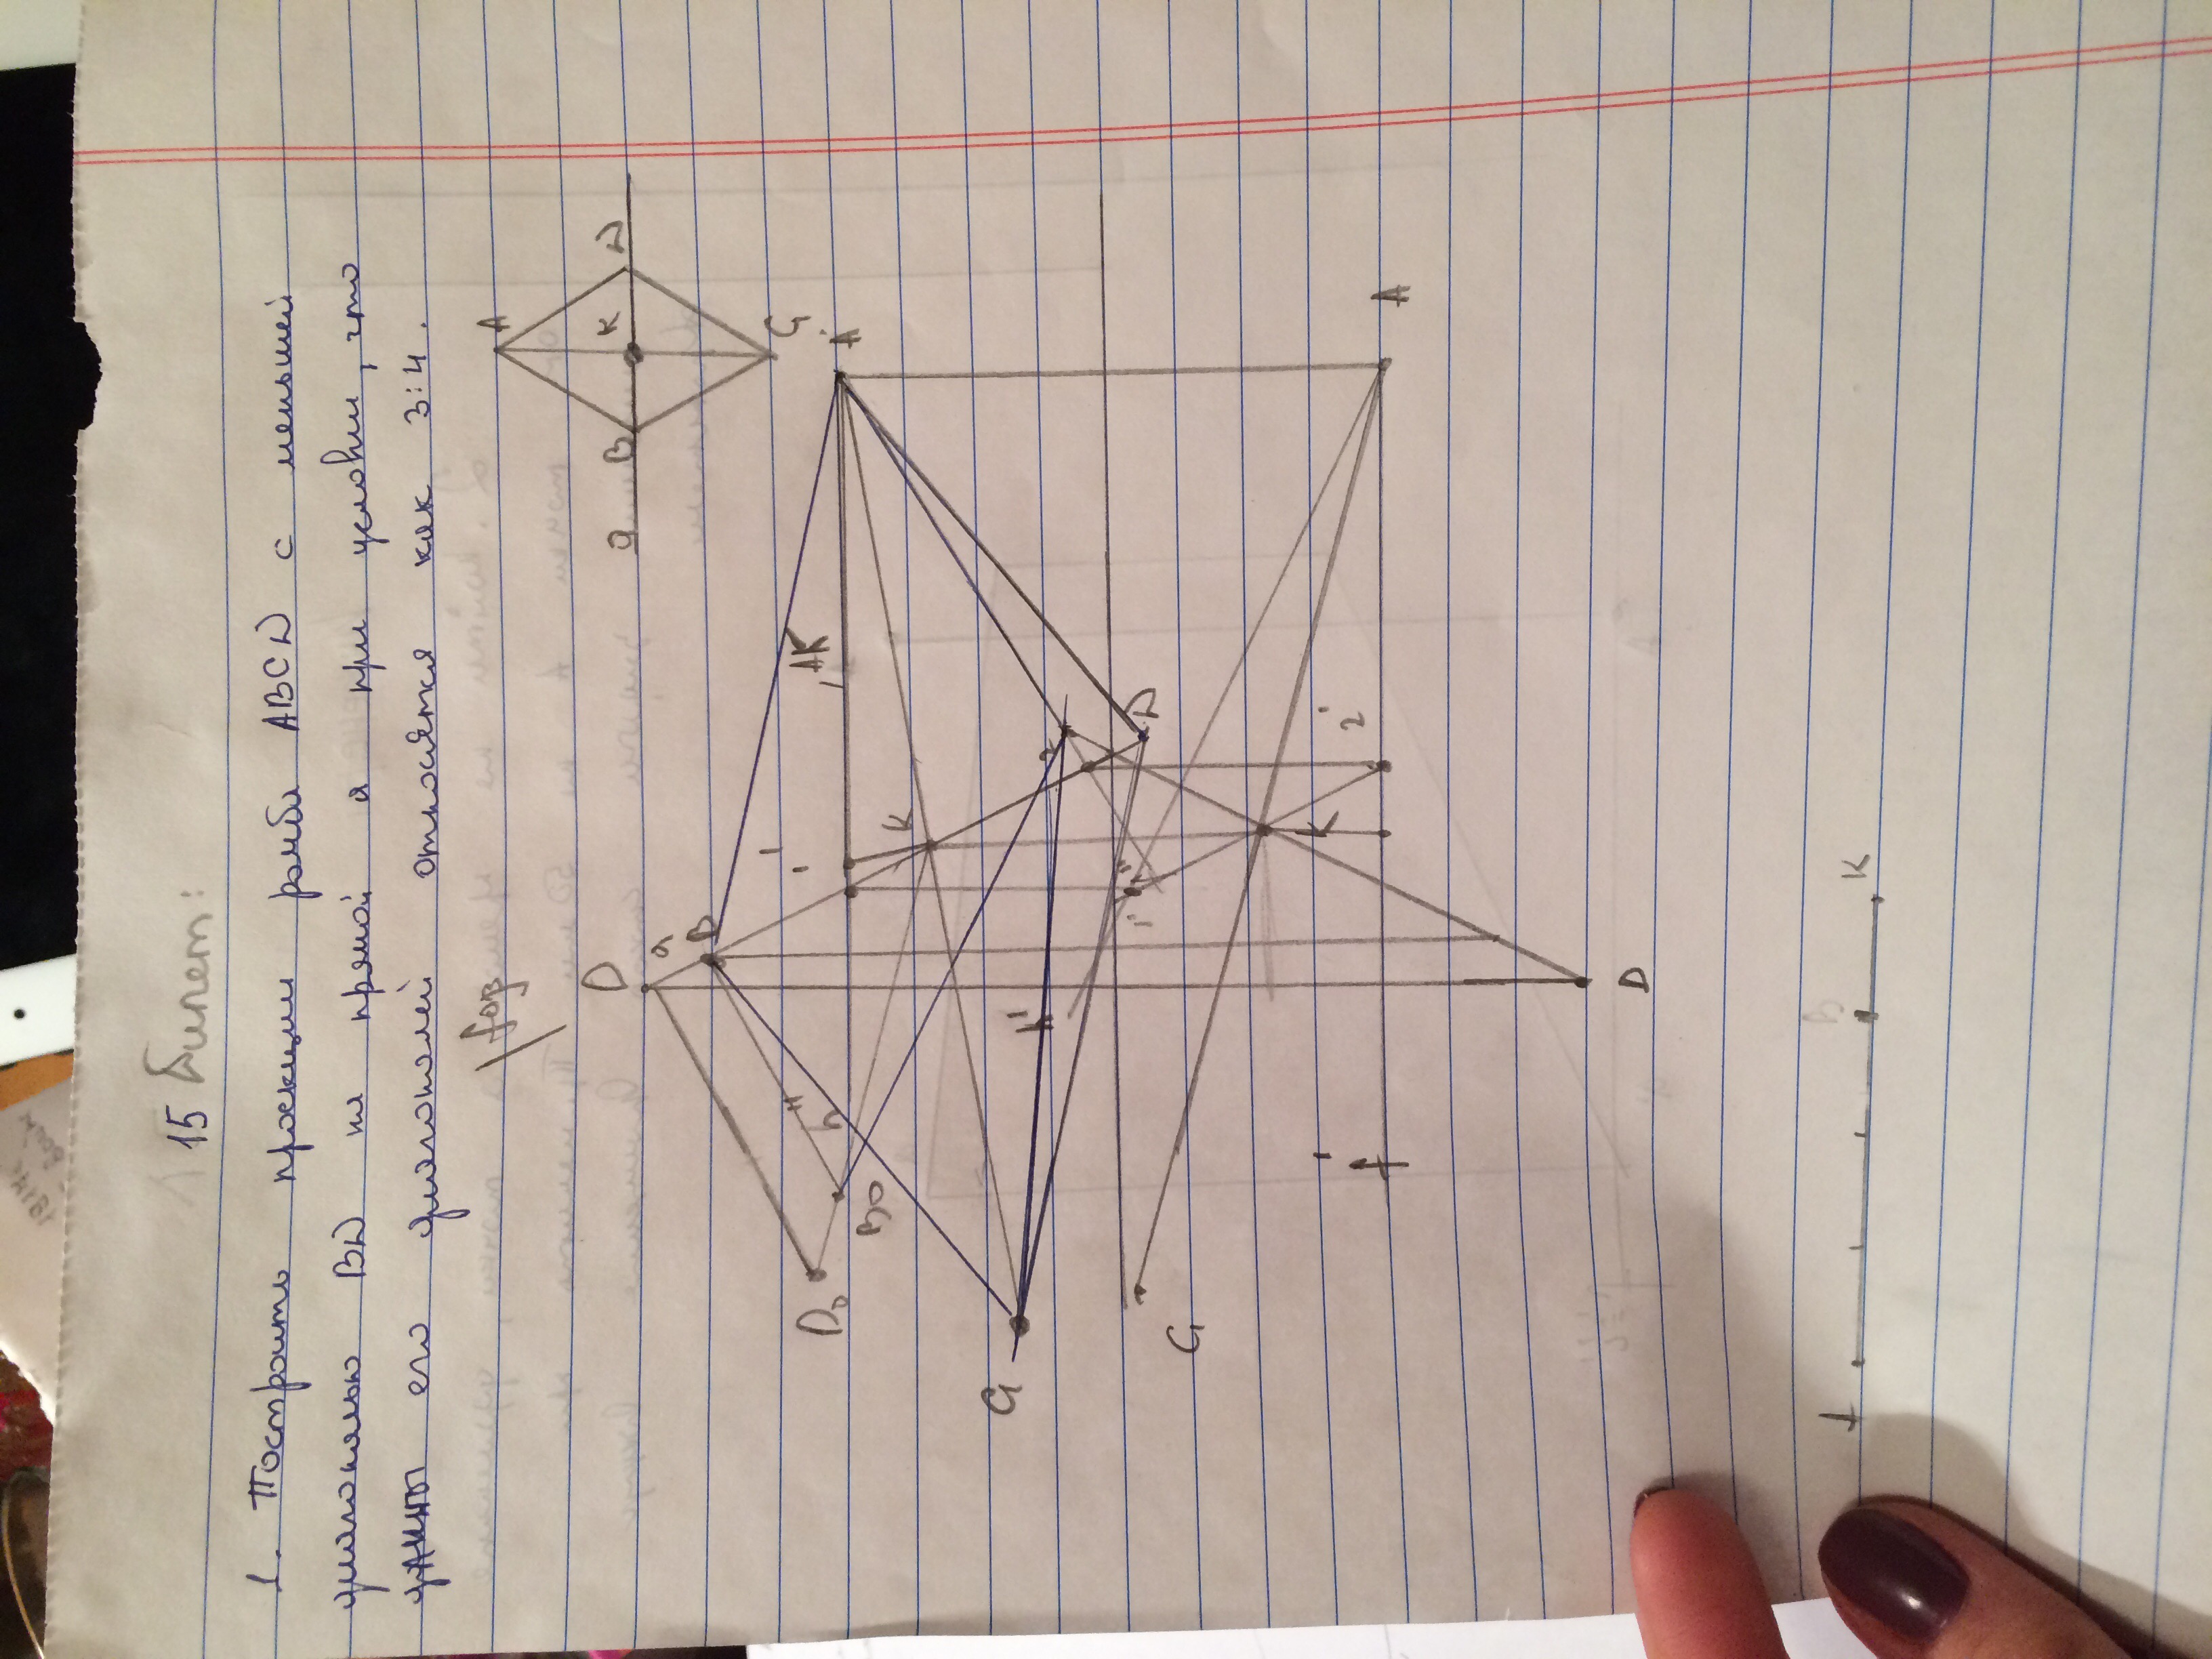 15 Билет:
1. Построить проекции ромба ABCD с меньшей
диагональю BD на прямой а при условии, что
длины его диагоналей относятся как 3:4.
A
a B K D
C
D
a
B
D₀
B₀
h"
1'
AK
A'
K
C
2
D
C
K
f'
2'
A
D
A B K